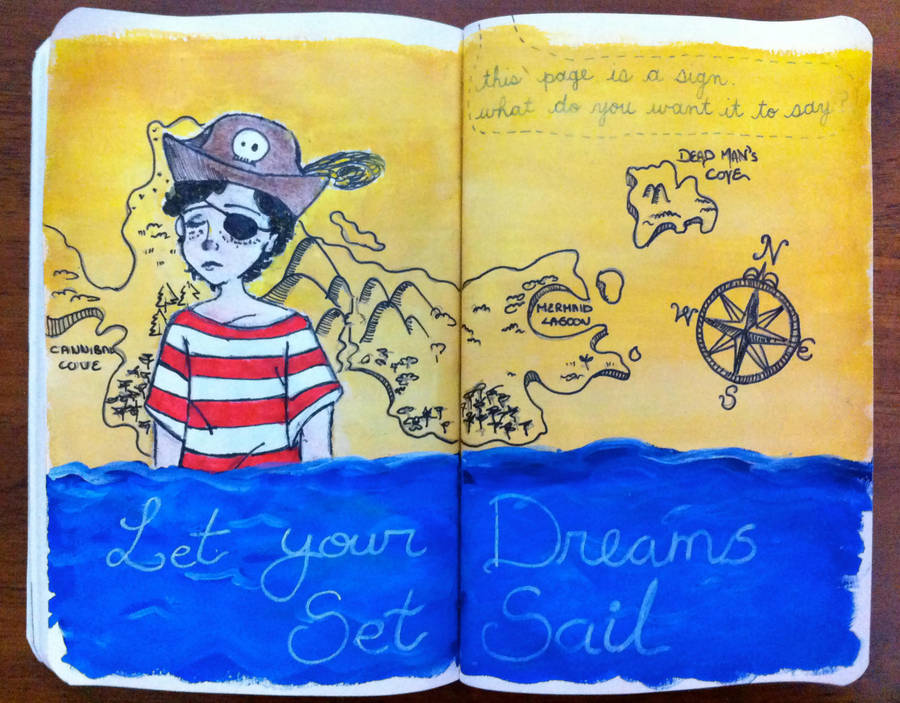 this page is a sign.
what do you want it to say?
DEAD MAN'S
COVE
N
W
E
S
MERMAID
LAGOON
CANNIBAL
COVE
Let your Dreams
Set Sail